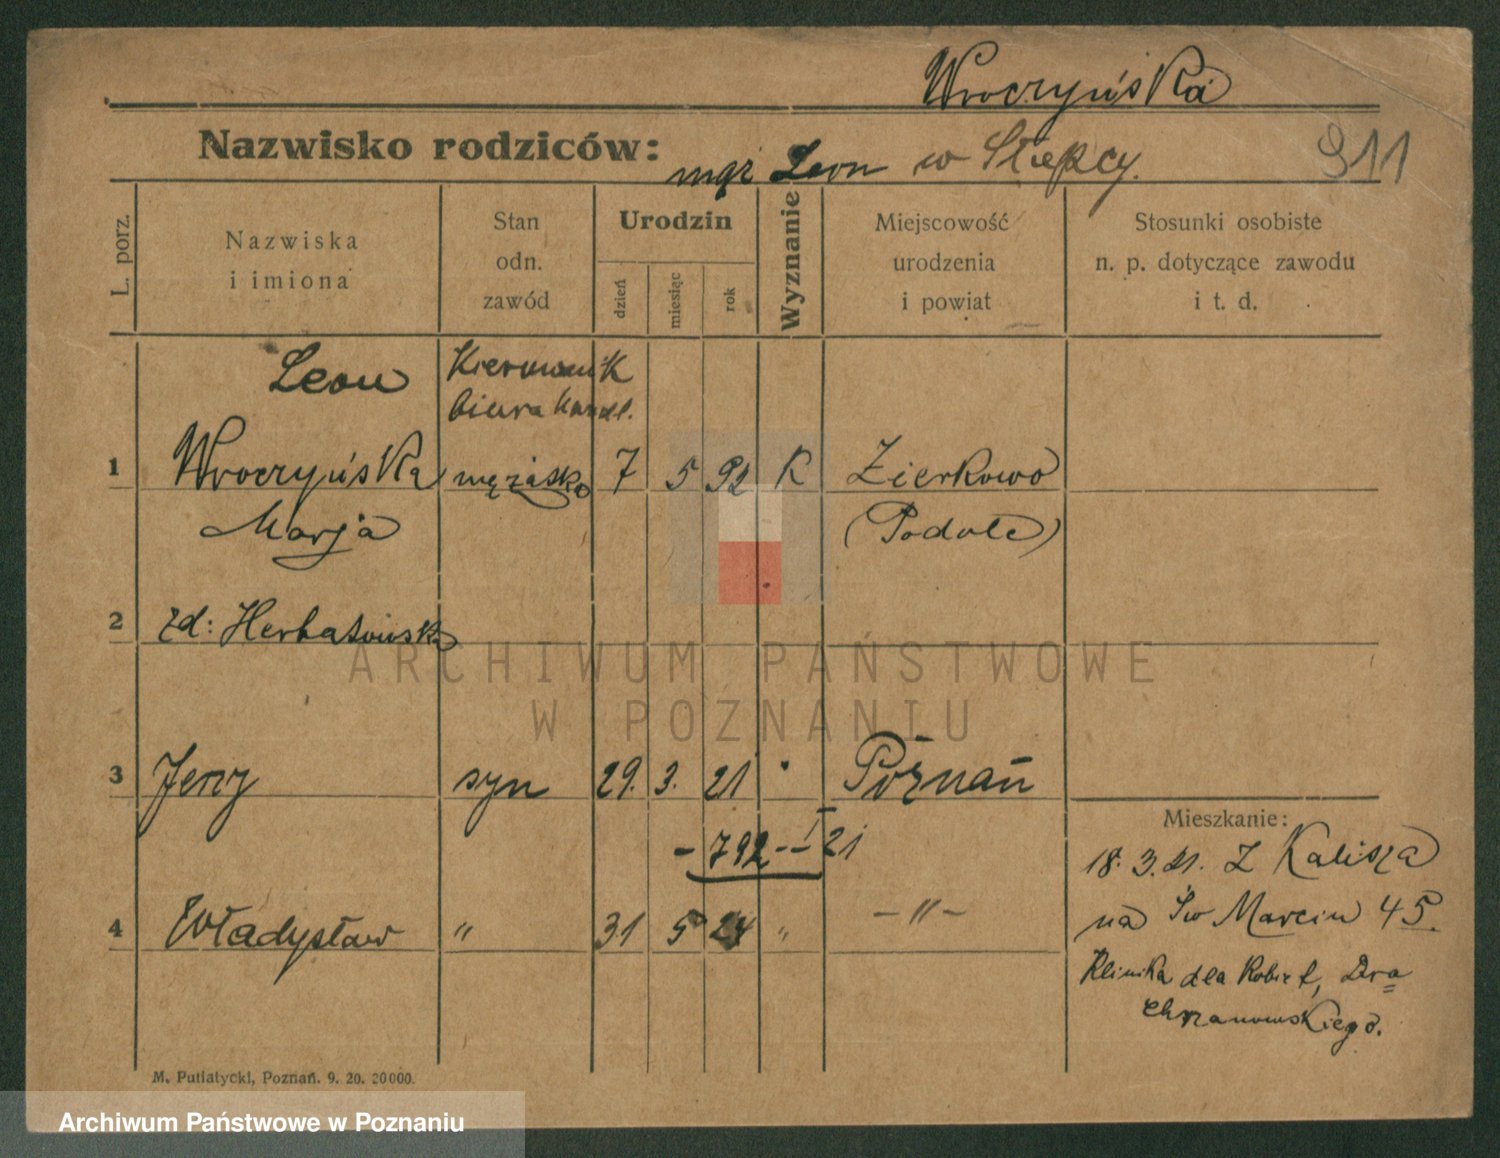 Wroczyńska
Nazwisko rodziców: mąż Leon w Słupcy. 911
L. porz.
Nazwiska
i imiona
Stan
odn.
zawód
Urodzin
dzień
miesiąc
rok
Wyznanie
Miejscowość
urodzenia
i powiat
Stosunki osobiste
n. p. dotyczące zawodu
i t. d.
Leon Kierownik
biura handl.
1 Wroczyńska mężatka 7 5 92 K Zierkowo
Marja (Podole)
2 zd: Herbatowska
3 Jerzy syn 29. 3. 21 " Poznań
- 792 - I 21
4 Władysław " 31 5 24 " - " -
Mieszkanie:
18. 3. 21. Z Kalisza
na Św Marcin 45.
Klinika dla Kobiet, Dra
Chrzanowskiego.
M. Putiatycki, Poznań. 9. 20. 20000.
ARCHIWUM PAŃSTWOWE
W POZNANIU
Archiwum Państwowe w Poznaniu